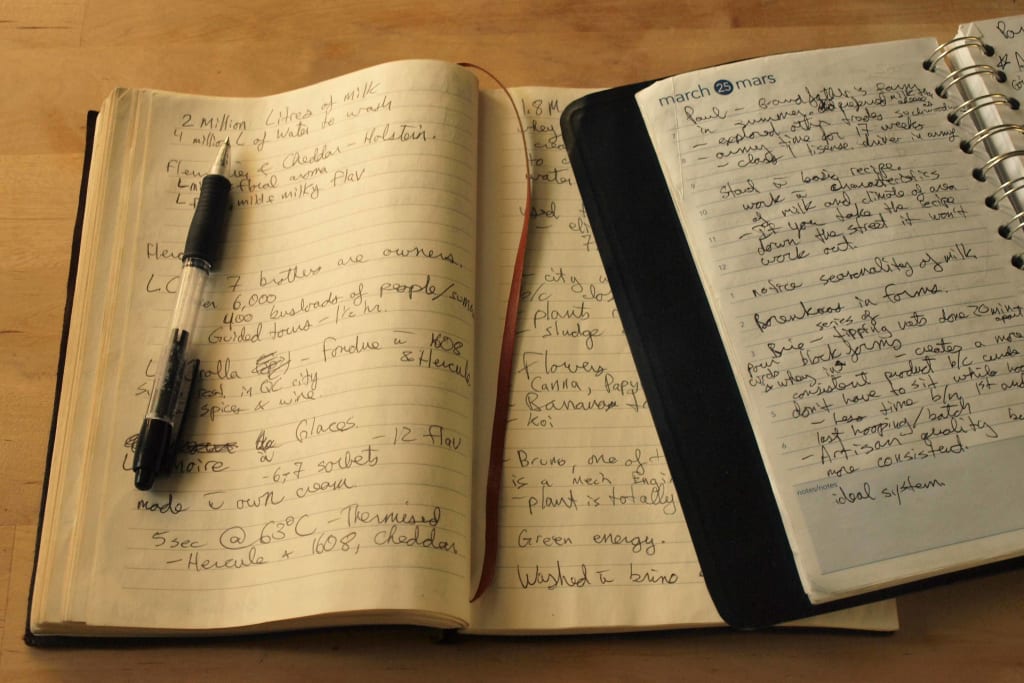 2 Million Litres of Milk
4 million L of water to wash
& Cheddar - Holstein.
floral aroma
mild & milky flav
7 brothers are owners.
6,000
400 busloads of people/
Guided tours - 1½ hr.
- Fondue c̄ 1608
& Hercule
in QC city
spices & wine.
Glaces
- 12 flav
- 6-7 sorbets
made c̄ own cream
5 sec @ 63°C - Thermised
- Hercule + 1608, Cheddar
1.8 M
they
to c
water
used t
- eli
7
- city w
b/c clos
- plants
- sludge
Flowers
- Canna, Papy
- Banana t
- Koi
- Bruno, one of t
is a Mech Engi
- plant is totally
Green energy.
Washed c̄ brine
march 25 mars
Paul - Grandfather's farm
in summer
- explored other trades
- army time for 17 weeks
- class 1 license driver in army
Start c̄ basic recipe.
work c̄ characteristics
of milk and climate of area
- if you take the recipe
down the street it won't
work out.
notice seasonality of milk
in forms.
Brie - series of tipping vats done 20 min apart
pour block forms
- creates a more
consistent product b/c curds
don't have to sit while
- less time b/n 1st and
last hooping/batch
- Artisan quality
more consisted.
notes/notes
ideal system